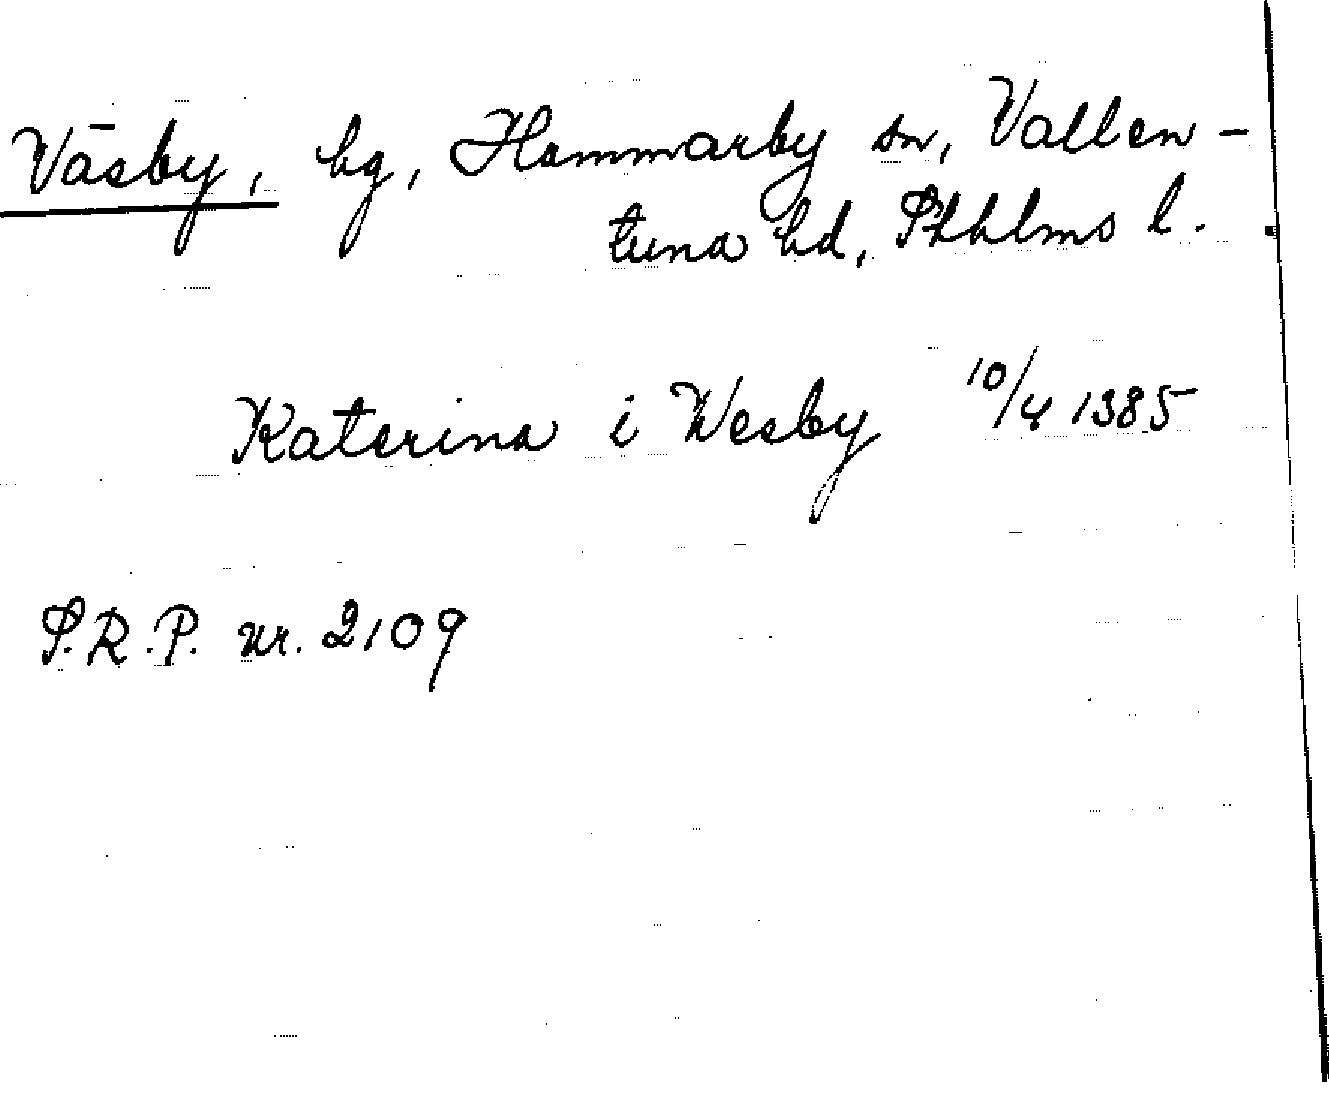 Väsby, hg, Hammarby sn, Vallen-
tuna hd, Sthlms l.
Katerina i Wesby 10/4 1385
S.R.P. nr. 2109